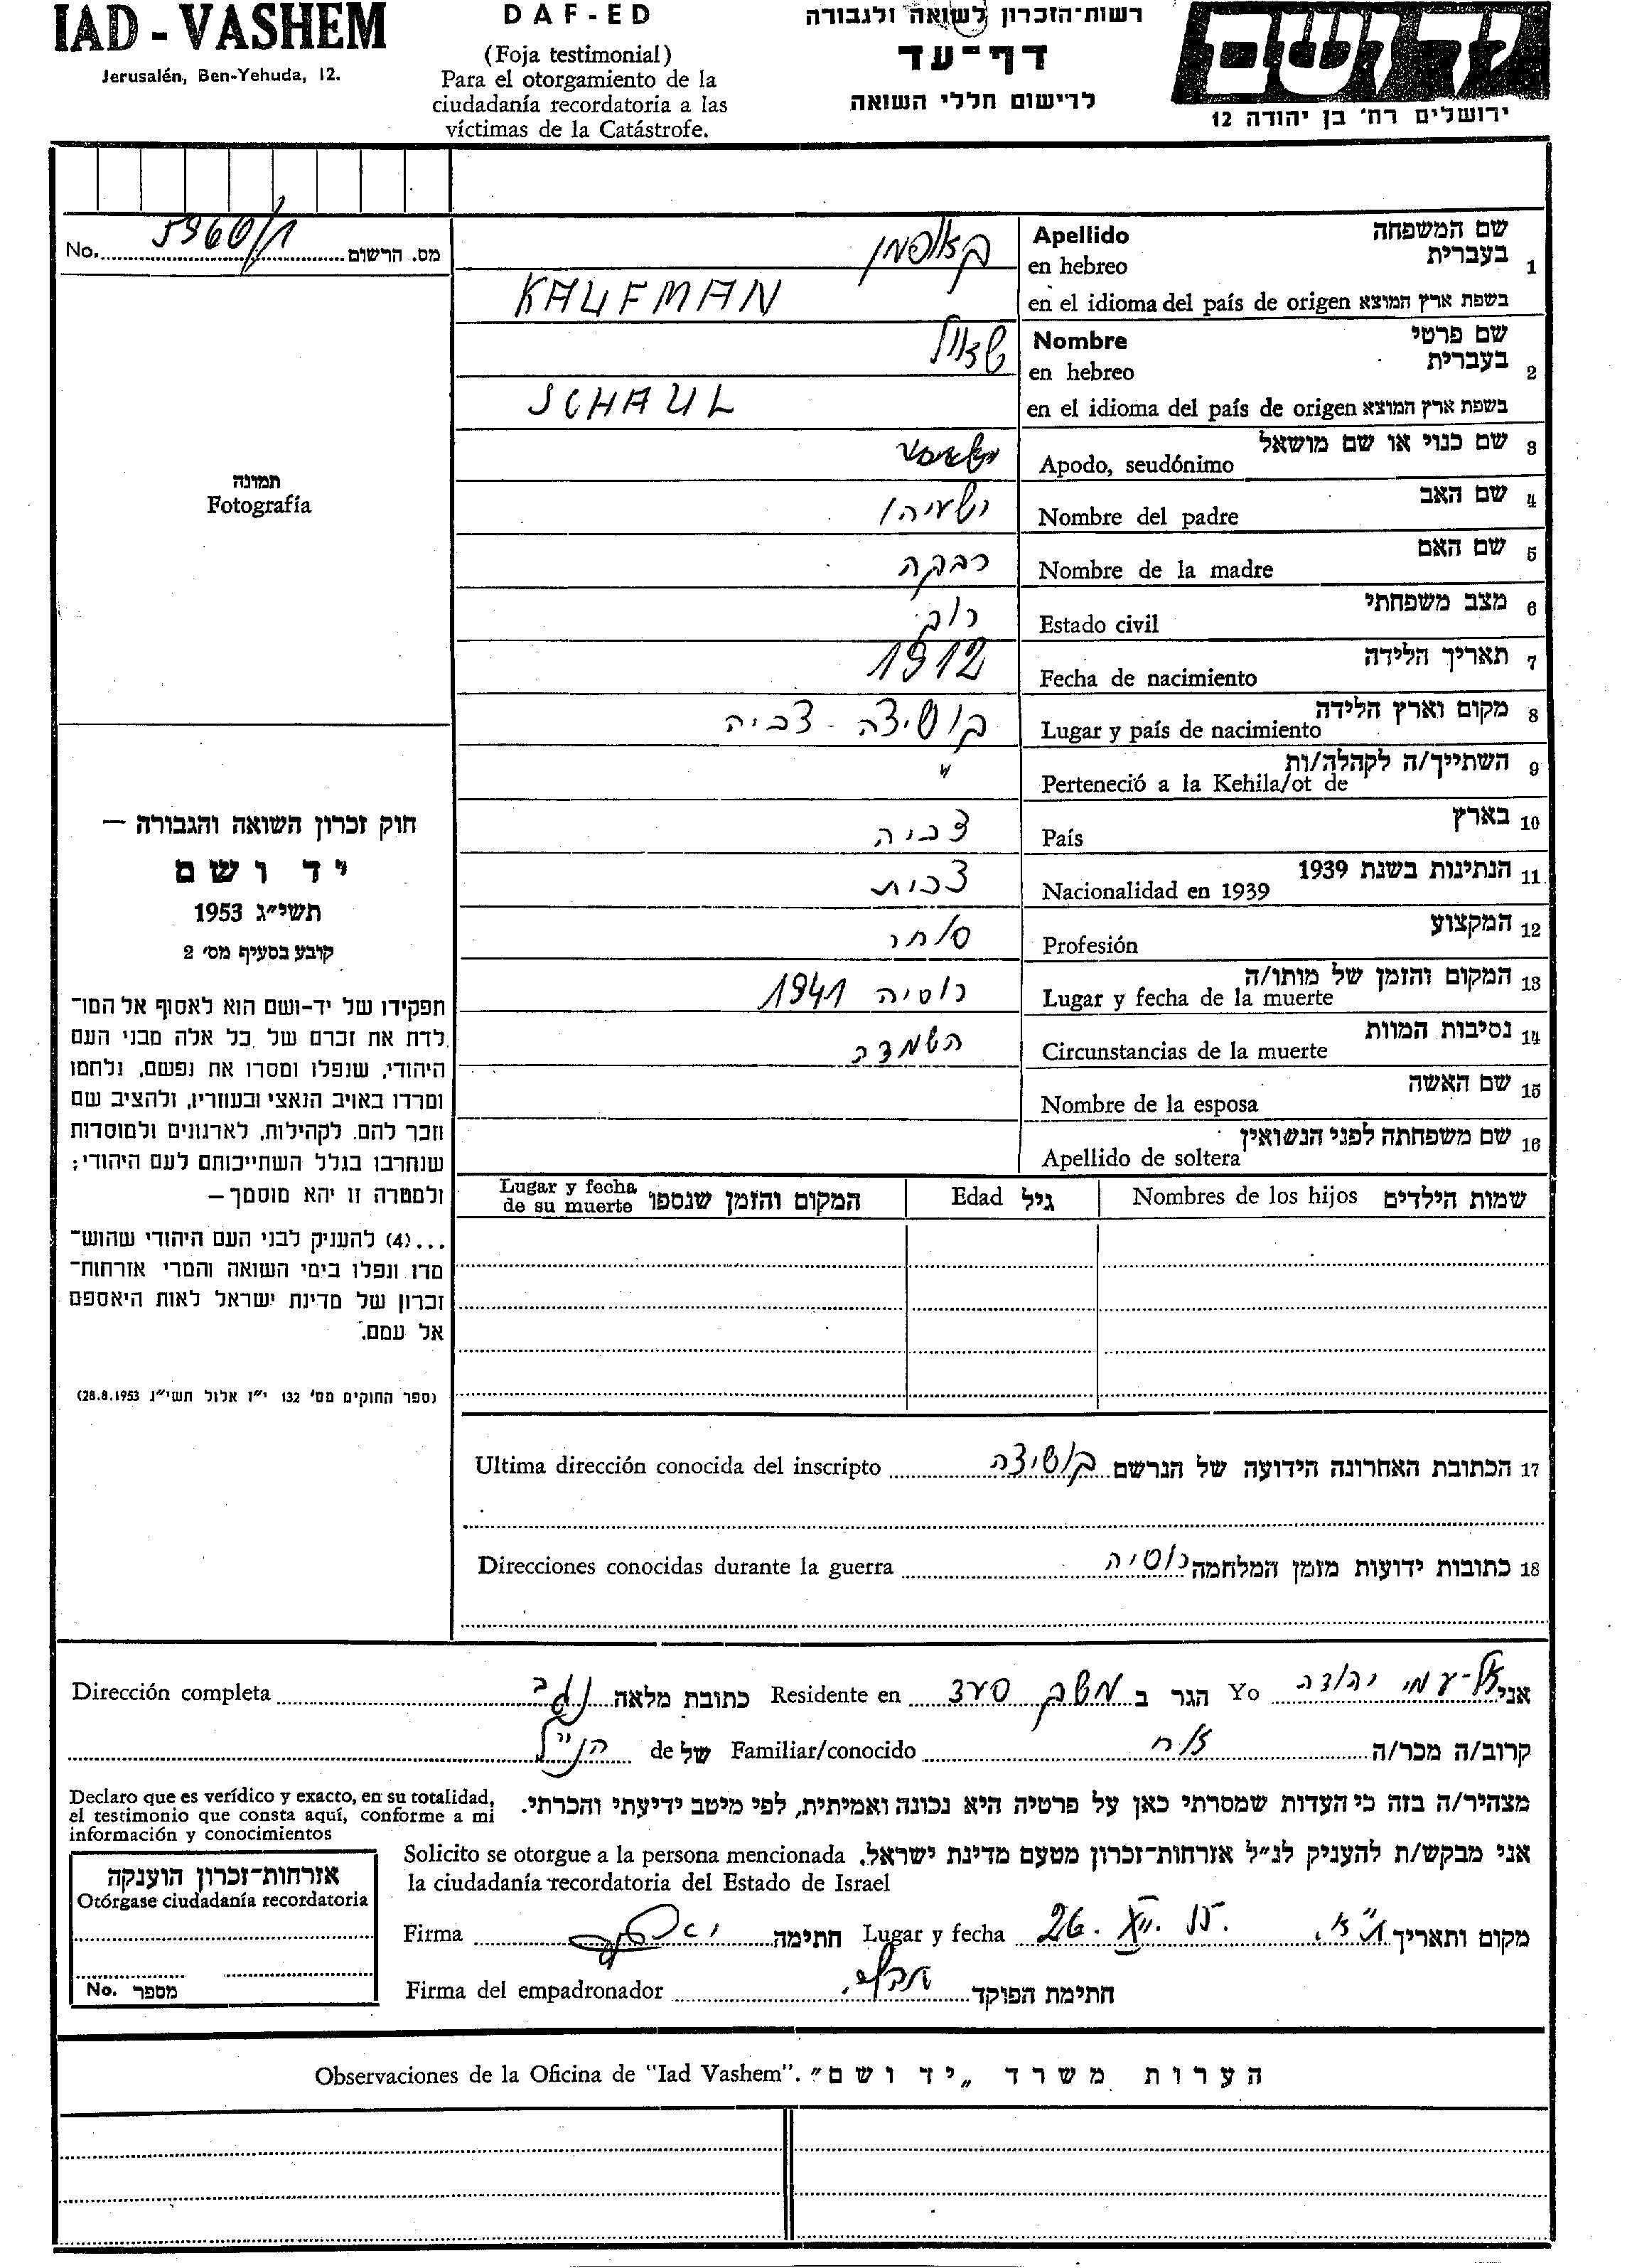 IAD - VASHEM
Jerusalén, Ben-Yehuda, 12.
DAF-ED
(Foja testimonial)
Para el otorgamiento de la
ciudadanía recordatoria a las
víctimas de la Catástrofe.
רשות-הזכרון לשואה ולגבורה
דף-עד
לרישום חללי השואה
ידושם
ירושלים רח' בן יהודה 12
No. 5960/1 מס. הרשום
תמונה
Fotografía
חוק זכרון השואה והגבורה —
יד ושם
תשי״ג 1953
קובע בסעיף מס׳ 2
תפקידו של יד-ושם הוא לאסוף אל המו־
לדת את זכרם של כל אלה מבני העם
היהודי, שנפלו ומסרו את נפשם, נלחמו
ומרדו באויב הנאצי ובעוזריו, ולהציב שם
וזכר להם, לקהילות, לארגונים ולמוסדות
שנחרבו בגלל השתייכותם לעם היהודי;
ולמטרה זו יהא מוסמך —
...(4) להעניק לבני העם היהודי שהוש־
מדו ונפלו בימי השואה והמרי אזרחות־
זכרון של מדינת ישראל לאות היאספם
אל עמם.
(ספר החוקים מס' 132 י״ז אלול תשי״ג 28.8.1953)
1 שם המשפחה
Apellido
בעברית
en hebreo קאופמן
en el idioma del país de origen בשפת ארץ המוצא KAUFMAN
2 שם פרטי
Nombre
בעברית
en hebreo שאול
en el idioma del país de origen בשפת ארץ המוצא SCHAUL
3 שם כנוי או שם מושאל
Apodo, seudónimo
4 שם האב
Nombre del padre ישעיהו
5 שם האם
Nombre de la madre רבקה
6 מצב משפחתי
Estado civil רוק
7 תאריך הלידה
Fecha de nacimiento 1912
8 מקום וארץ הלידה
Lugar y país de nacimiento קושיצה - צכיה
9 השתייך/ה לקהלה/ות
Perteneció a la Kehila/ot de "
10 בארץ
País צכיה
11 הנתינות בשנת 1939
Nacionalidad en 1939 צכית
12 המקצוע
Profesión סוחר
13 המקום והזמן של מותו/ה
Lugar y fecha de la muerte רוסיה 1941
14 נסיבות המוות
Circunstancias de la muerte השמדה
15 שם האשה
Nombre de la esposa
16 שם משפחתה לפני הנשואין
Apellido de soltera
שמות הילדים Nombres de los hijos
גיל Edad
המקום והזמן שנספו Lugar y fecha
de su muerte
17 הכתובת האחרונה הידועה של הנרשם קושיצה Ultima dirección conocida del inscripto
18 כתובות ידועות מזמן המלחמה רוסיה Direcciones conocidas durante la guerra
אני אל-עמי יהודה Yo הגר ב משק סעד Residente en כתובת מלאה נגב Dirección completa
קרוב/ה מכר/ה אח Familiar/conocido של de הנ״ל
מצהיר/ה בזה כי העדות שמסרתי כאן על פרטיה היא נכונה ואמיתית, לפי מיטב ידיעתי והכרתי.
Declaro que es verídico y exacto, en su totalidad,
el testimonio que consta aquí, conforme a mi
información y conocimientos
אני מבקש/ת להעניק לנ״ל אזרחות-זכרון מטעם מדינת ישראל. Solicito se otorgue a la persona mencionada
la ciudadanía recordatoria del Estado de Israel
מקום ותאריך ת״א, 26. XII. 55. Lugar y fecha חתימה Firma
חתימת הפוקד Firma del empadronador
אזרחות-זכרון הוענקה
Otórgase ciudadanía recordatoria
No. מספר
Observaciones de la Oficina de "Iad Vashem". הערות משרד „יד ושם״